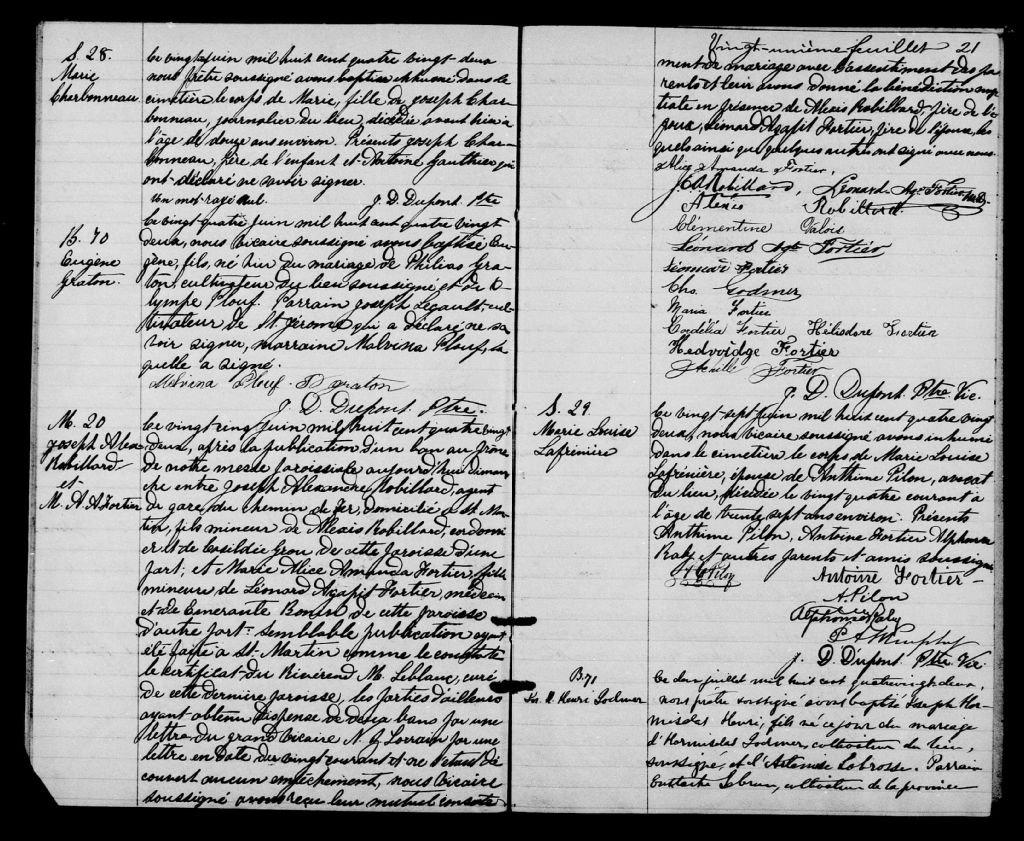 S. 28.
Marie
Charbonneau.
Ce vingt juin mil huit cent quatre vingt-deux
nous prêtre soussigné avons inhumé dans le
cimetière le corps de Marie, fille de Joseph Char-
bonneau, journalier du lieu, décédée avant hier à
l'âge de douze ans environ. Présents Joseph Char-
bonneau, père de l'enfant et Antoine Gauthier qui
ont déclaré ne savoir signer.
Un mot rayé nul. J. D. Dupont Ptre
B. 70
Eugène
Graton.
Ce vingt quatre juin mil huit cent quatre vingt
deux, nous vicaire soussigné avons baptisé Eu-
gène, fils, né hier du mariage de Philias Gra-
ton, cultivateur du lieu soussigné et de O-
lympe Plouf. Parrain Joseph Legault, cul-
tivateur de St. Jérome qui a déclaré ne sa-
voir signer, marraine Malvina Plouf, la
quelle a signé.
Malvina Plouf. P Graton
J. D. Dupont. Ptre.
M. 20
Joseph A. lex.
Robillard
et
M. A. A. Fortier
Ce vingt cinq juin mil huit cent quatre vingt
deux, après la publication d'un ban au prône
de notre messe paroissiale aujourd'hui diman-
che entre Joseph Alexandre Robillard, agent
de gare du chemin de fer, domicilié à St. Mar-
tin, fils mineur de Alexis Robillard, cordonni-
er et de Casildée Grou de cette paroisse d'une
part; et Marie Alice Amanda Fortier, fille
mineure de Léonard Agapit Fortier, médecin
et de Esmerante de cette paroisse
d'autre part: semblable publication ayant
été faite à St. Martin comme le constate
le certificat du Révérend M. Leblanc, curé
de cette dernière paroisse, les parties d'ailleurs
ayant obtenu dispense de deux bans par une
lettre du grand vicaire N. Z Lorrain par une
lettre en date du vingt courant et ne s'étant dé-
couvert aucun empêchement, nous vicaire
soussigné avons reçu leur mutuel consente
Vingt-unième feuillet 21
ment de mariage avec l'assentiment des pa-
rents et leur avons donné la bénédiction nup-
tiale en présence de Alexis Robillard, père de l'é-
poux, Léonard Agapit Fortier, père de l'épouse, les
quels ainsi que quelques autres ont signé avec nous.
Alice Amanda Fortier,
J A Robillard, Léonard Ag. Fortier
Alexis Robillard.
Clémentine Valois
Léonard Fortier
Léonard Fortier
Chs. Godmer
Maria Fortier
Cordélia Fortier Héliodore Fortier
Hedvoidge Fortier
Fortier
J. D. Dupont Ptre Vic.
S. 29
Marie Louise
Lafrinière
Ce vingt-sept juin mil huit cent quatre vingt
deux, nous vicaire soussigné avons inhumé
dans le cimetière le corps de Marie Louise
Lafrenière, épouse de Anthime Pilon, avocat
du lieu, décédée le vingt quatre courant à
l'âge de trente sept ans environ. Présents
Anthime Pilon, Antoine Fortier Alphonse
Raby et autres parents et amis soussignés
Antoine Fortier
A. Pilon
Alphonse Raby
P. A. Murphy
J. D. Dupont Ptre Vic
B 71
Jos. H. Henri Godmer
Ce deux juillet mil huit cent quatrevingt deux,
nous prêtre soussigné avons baptisé Joseph Hor-
misdas Henri, fils né ce jour du mariage
d'Hormisdas Godmer, cultivateur du lieu,
soussigné, et d'Artémise Labrosse. Parrain
Eustache Lebrun, cultivateur de la province